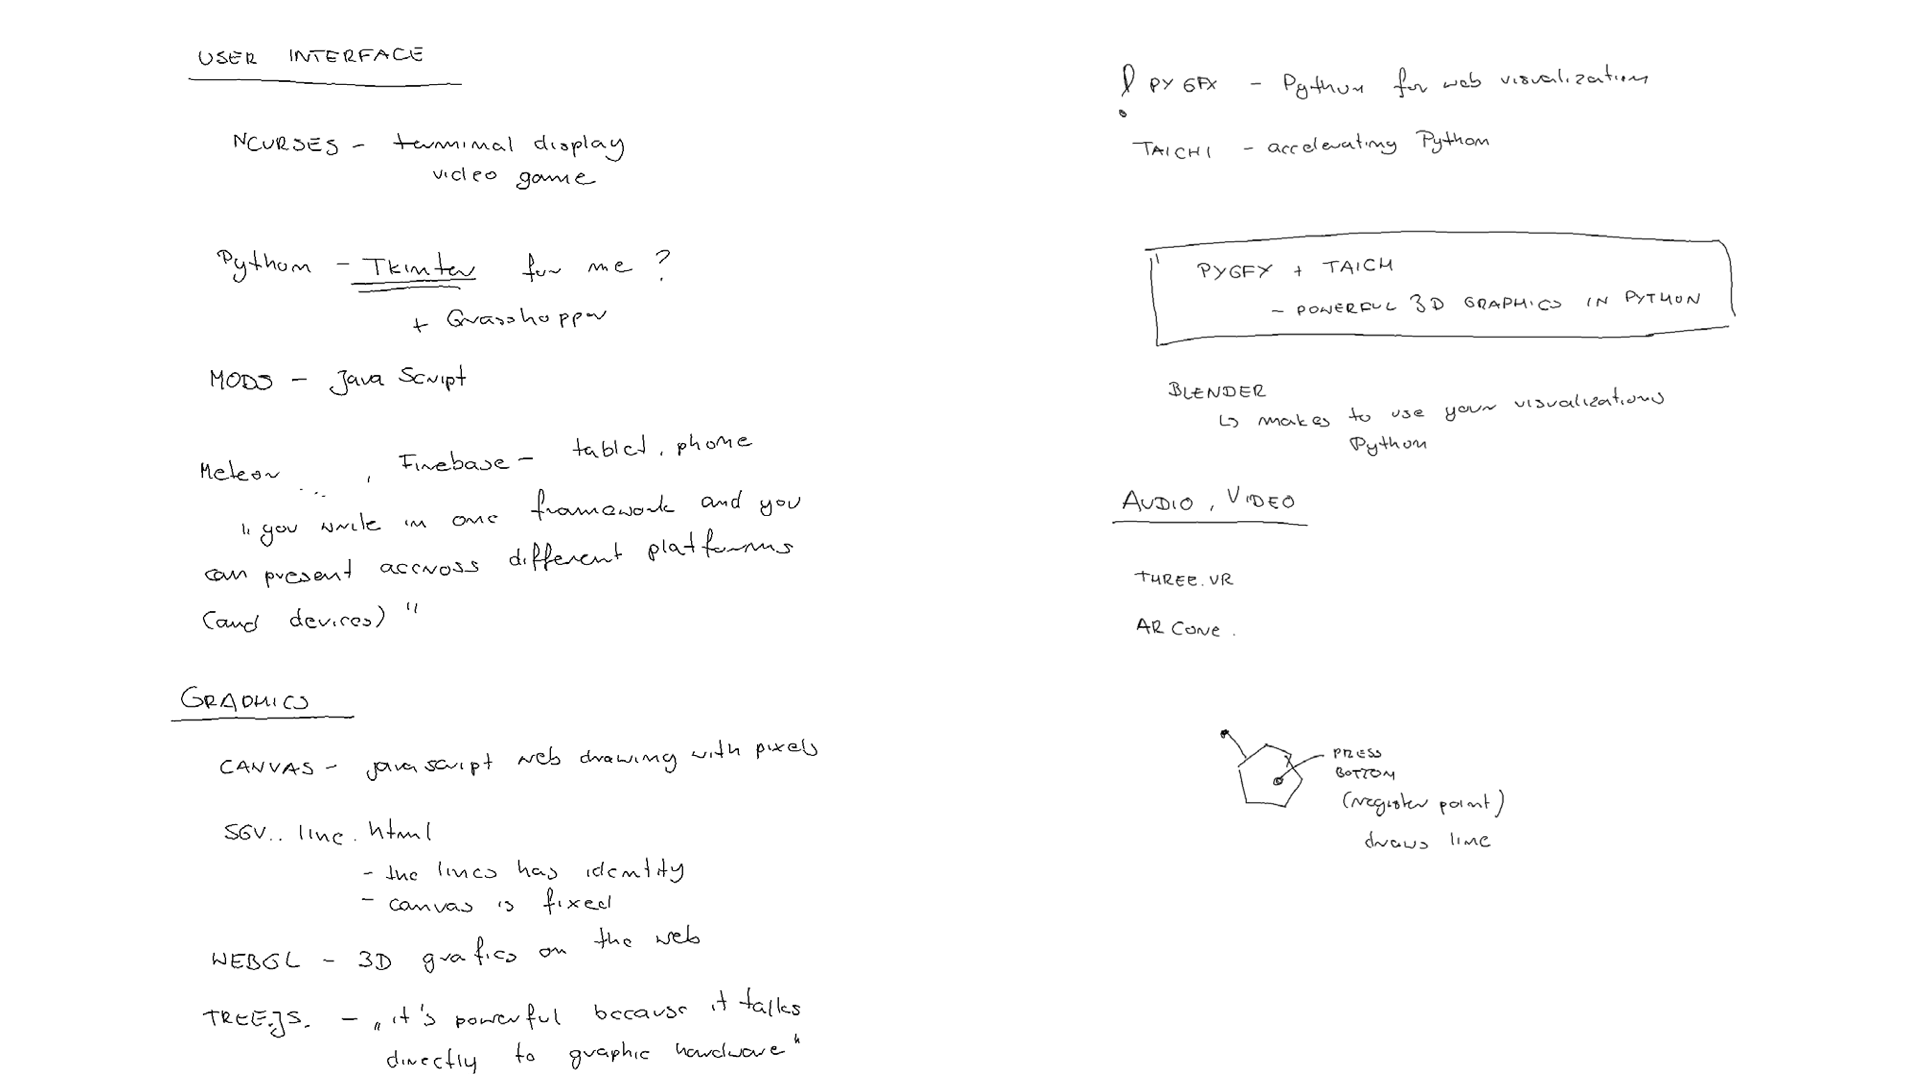 USER INTERFACE
NCURSES - terminal display
video game
Python - Tkinter for me ?
+ Grasshopper
MODS - Java Script
Meteor ... , Firebase - tablet, phone
"you write in one framework and you
can present accross different platforms
(and devices)"
GRAPHICS
CANVAS - javascript web drawing with pixels
SGV.. line.html
- the lines has identity
- canvas is fixed
WEBGL - 3D grafics on the web
TREE.JS. - "it's powerful because it talks
directly to graphic hardware"
! PYGFX - Python for web visualization
TAICHI - accelerating Python
PYGFX + TAICH
- POWERFUL 3D GRAPHICS IN PYTHON
BLENDER
↳ makes to use your visualizations
Python
AUDIO, VIDEO
THREE.VR
AR Core.
PRESS
BOTTOM
(register point)
draws line